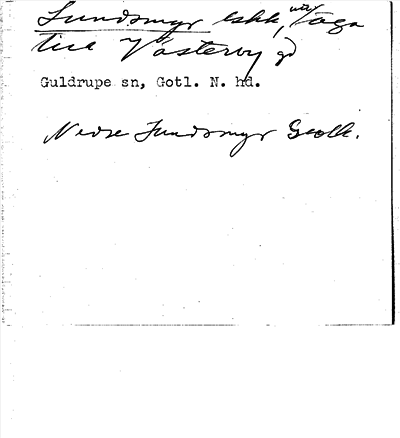 Lundsmyr lskk, utgr äga
till Västerby gd
Guldrupe sn, Gotl. N. hd.
Nedre Lundsmyr Geolk.